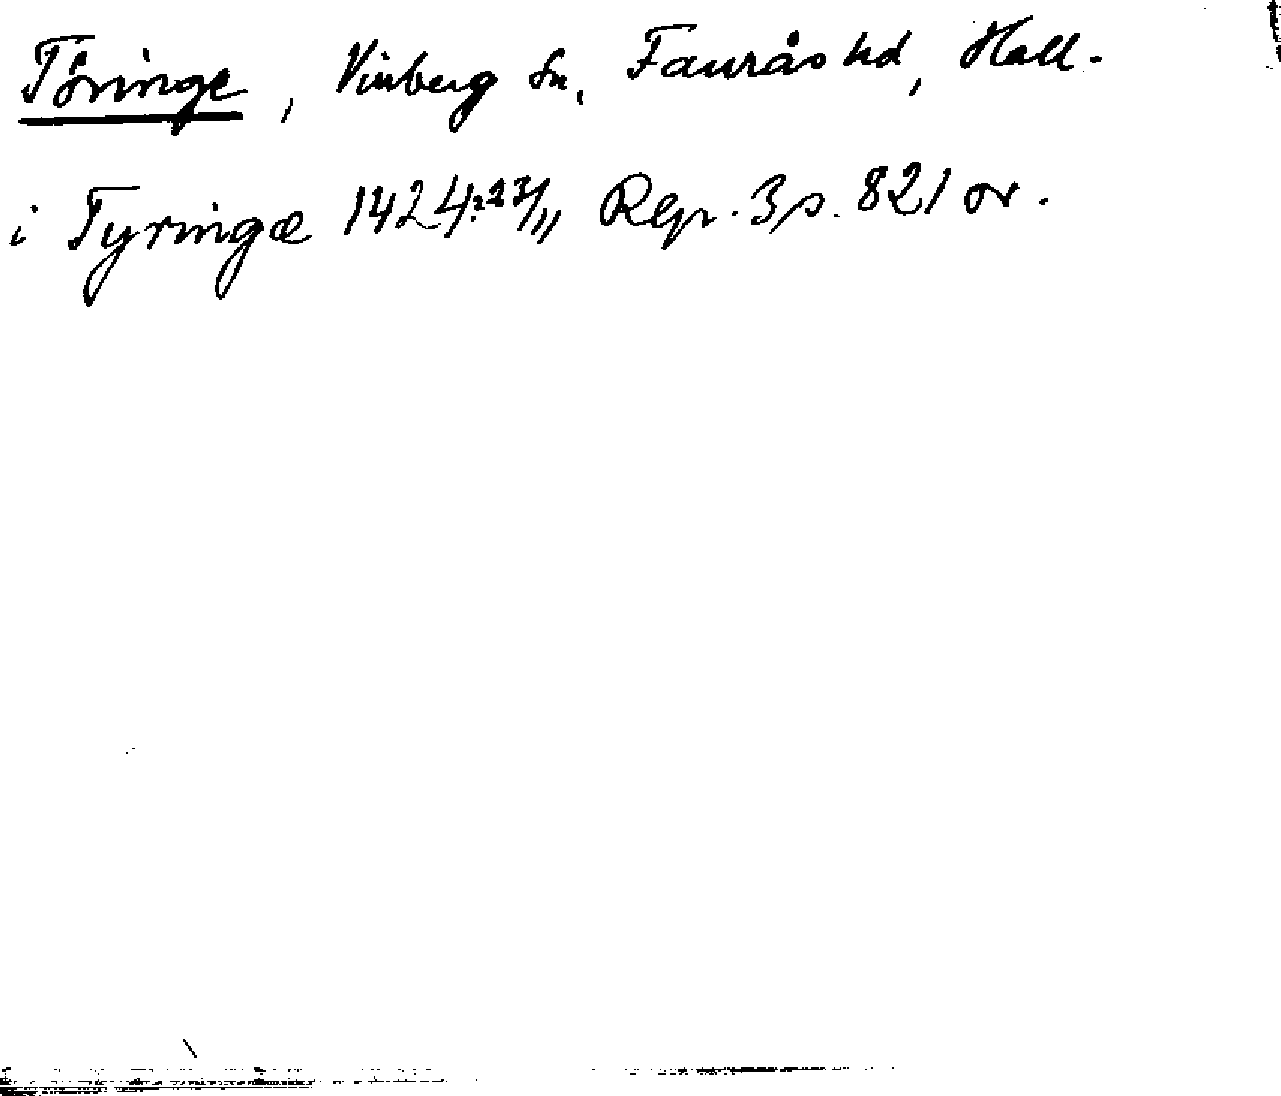 Töringe, Vinberg sn, Faurås hd, Hall.
i Tyringæ 1424 23/11 Rep. 3 s. 821 or.